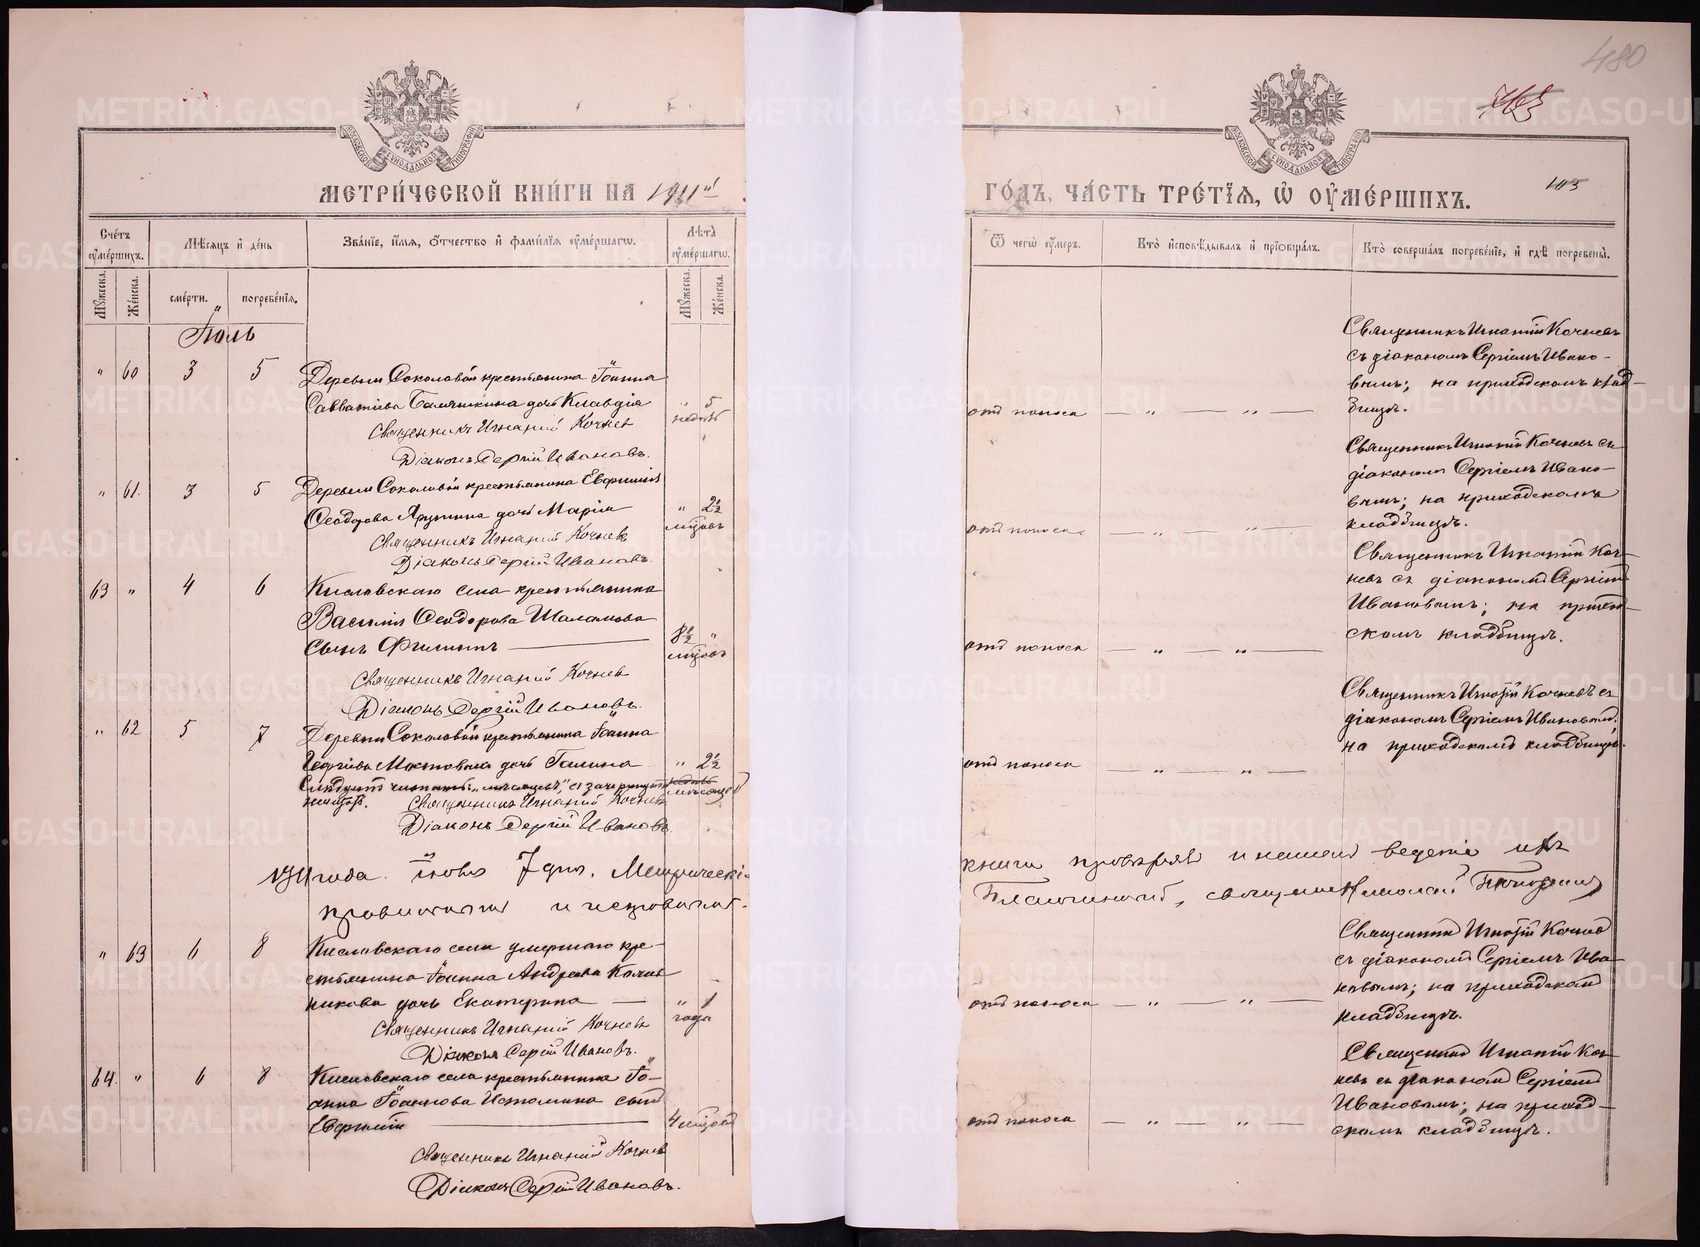 480
МЕТРИ́ЧЕСКОЙ КНИ́ГИ НА 1911 ГО́ДЪ, ЧА́СТЬ ТРЕ́ТЇѦ, Ѡ҆ ОУ҆МЕ́РШИХЪ.
103
Сче́тъ оу҆ме́ршихъ.
Мѣ́сяцъ и҆ де́нь
Зва́нїе, и҆́мя, ѻ҆́тчество и҆ фами́лїя оу҆ме́ршагѡ.
Лѣ́та оу҆ме́ршагѡ.
Ѿ чегѡ̀ оу҆́меръ.
Кто̀ и҆сповѣ́дывалъ и҆ прїѡбща́лъ.
Кто̀ соверша́лъ погребе́нїе, и҆ гдѣ̀ погребены̀.
Мꙋ́жеска.
Же́нска.
сме́рти.
погребе́нїя.
Мꙋ́жеска.
Же́нска.
Іюль
" 60 3 5 Деревни Соколовой крестьянина Іоанна
Савватіева дочь Клавдія " 5
недѣль
Священникъ Игнатій Кочневъ
Діаконъ Сергій Ивановъ.
отъ поноса — " — " —
Священникъ Игнатій Кочневъ
съ діакономъ Сергіемъ Ивано-
вымъ; на приходскомъ клад-
бищѣ.
" 61 3 5 Деревни Соколовой крестьянина Евфимія
Ѳеодорова дочь Марія " 2½
мѣсяц.
Священникъ Игнатій Кочневъ
Діаконъ Сергій Ивановъ.
отъ поноса — " — " —
Священникъ Игнатій Кочневъ съ
діакономъ Сергіемъ Ивано-
вымъ; на приходскомъ
кладбищѣ.
63 " 4 6 Кисловскаго села крестьянина
Василія Ѳеодорова Шаламова
сынъ Филиппъ — 8½ "
мѣсяц.
Священникъ Игнатій Кочневъ
Діаконъ Сергій Ивановъ.
отъ поноса — " — " —
Священникъ Игнатій Коч-
невъ съ діакономъ Сергіемъ
Ивановымъ; на приход-
скомъ кладбищѣ.
" 62 5 7 Деревни Соколовой крестьянина Іоанна
Георгіева дочь Галина " 2½
Слѣдуетъ читать: „мѣсяцевъ", а зачеркнуто недѣль
мѣсяцев
Священникъ Игнатій Кочневъ
Діаконъ Сергій Ивановъ
отъ поноса — " — " —
Священникъ Игнатій Кочневъ съ
діакономъ Сергіемъ Ивановымъ;
на приходскомъ кладбищѣ.
1911 года іюля 7 дня. Метрическія
книги провѣрялъ и нашелъ веденіе ихъ
правильнымъ и исправнымъ.
Благочинный, священникъ Николай
" 63 6 8 Кисловскаго села умершаго кре-
стьянина Іоанна Андреева
дочь Екатерина — " 1
года
Священникъ Игнатій Кочневъ
Діаконъ Сергій Ивановъ.
отъ поноса — " — " —
Священникъ Игнатій Кочневъ
съ діакономъ Сергіемъ Ива-
новымъ; на приходскомъ
кладбищѣ.
64 " 6 8 Кисловскаго села крестьянина Іо-
анна Іоаннова Истомина сынъ
Евфимій — 4 мѣсяц.
Священникъ Игнатій Кочневъ
Діаконъ Сергій Ивановъ.
отъ поноса — " — " —
Священникъ Игнатій Коч-
невъ съ діакономъ Сергіемъ
Ивановымъ; на приход-
скомъ кладбищѣ.
METRIKI.GASO-URAL.RU